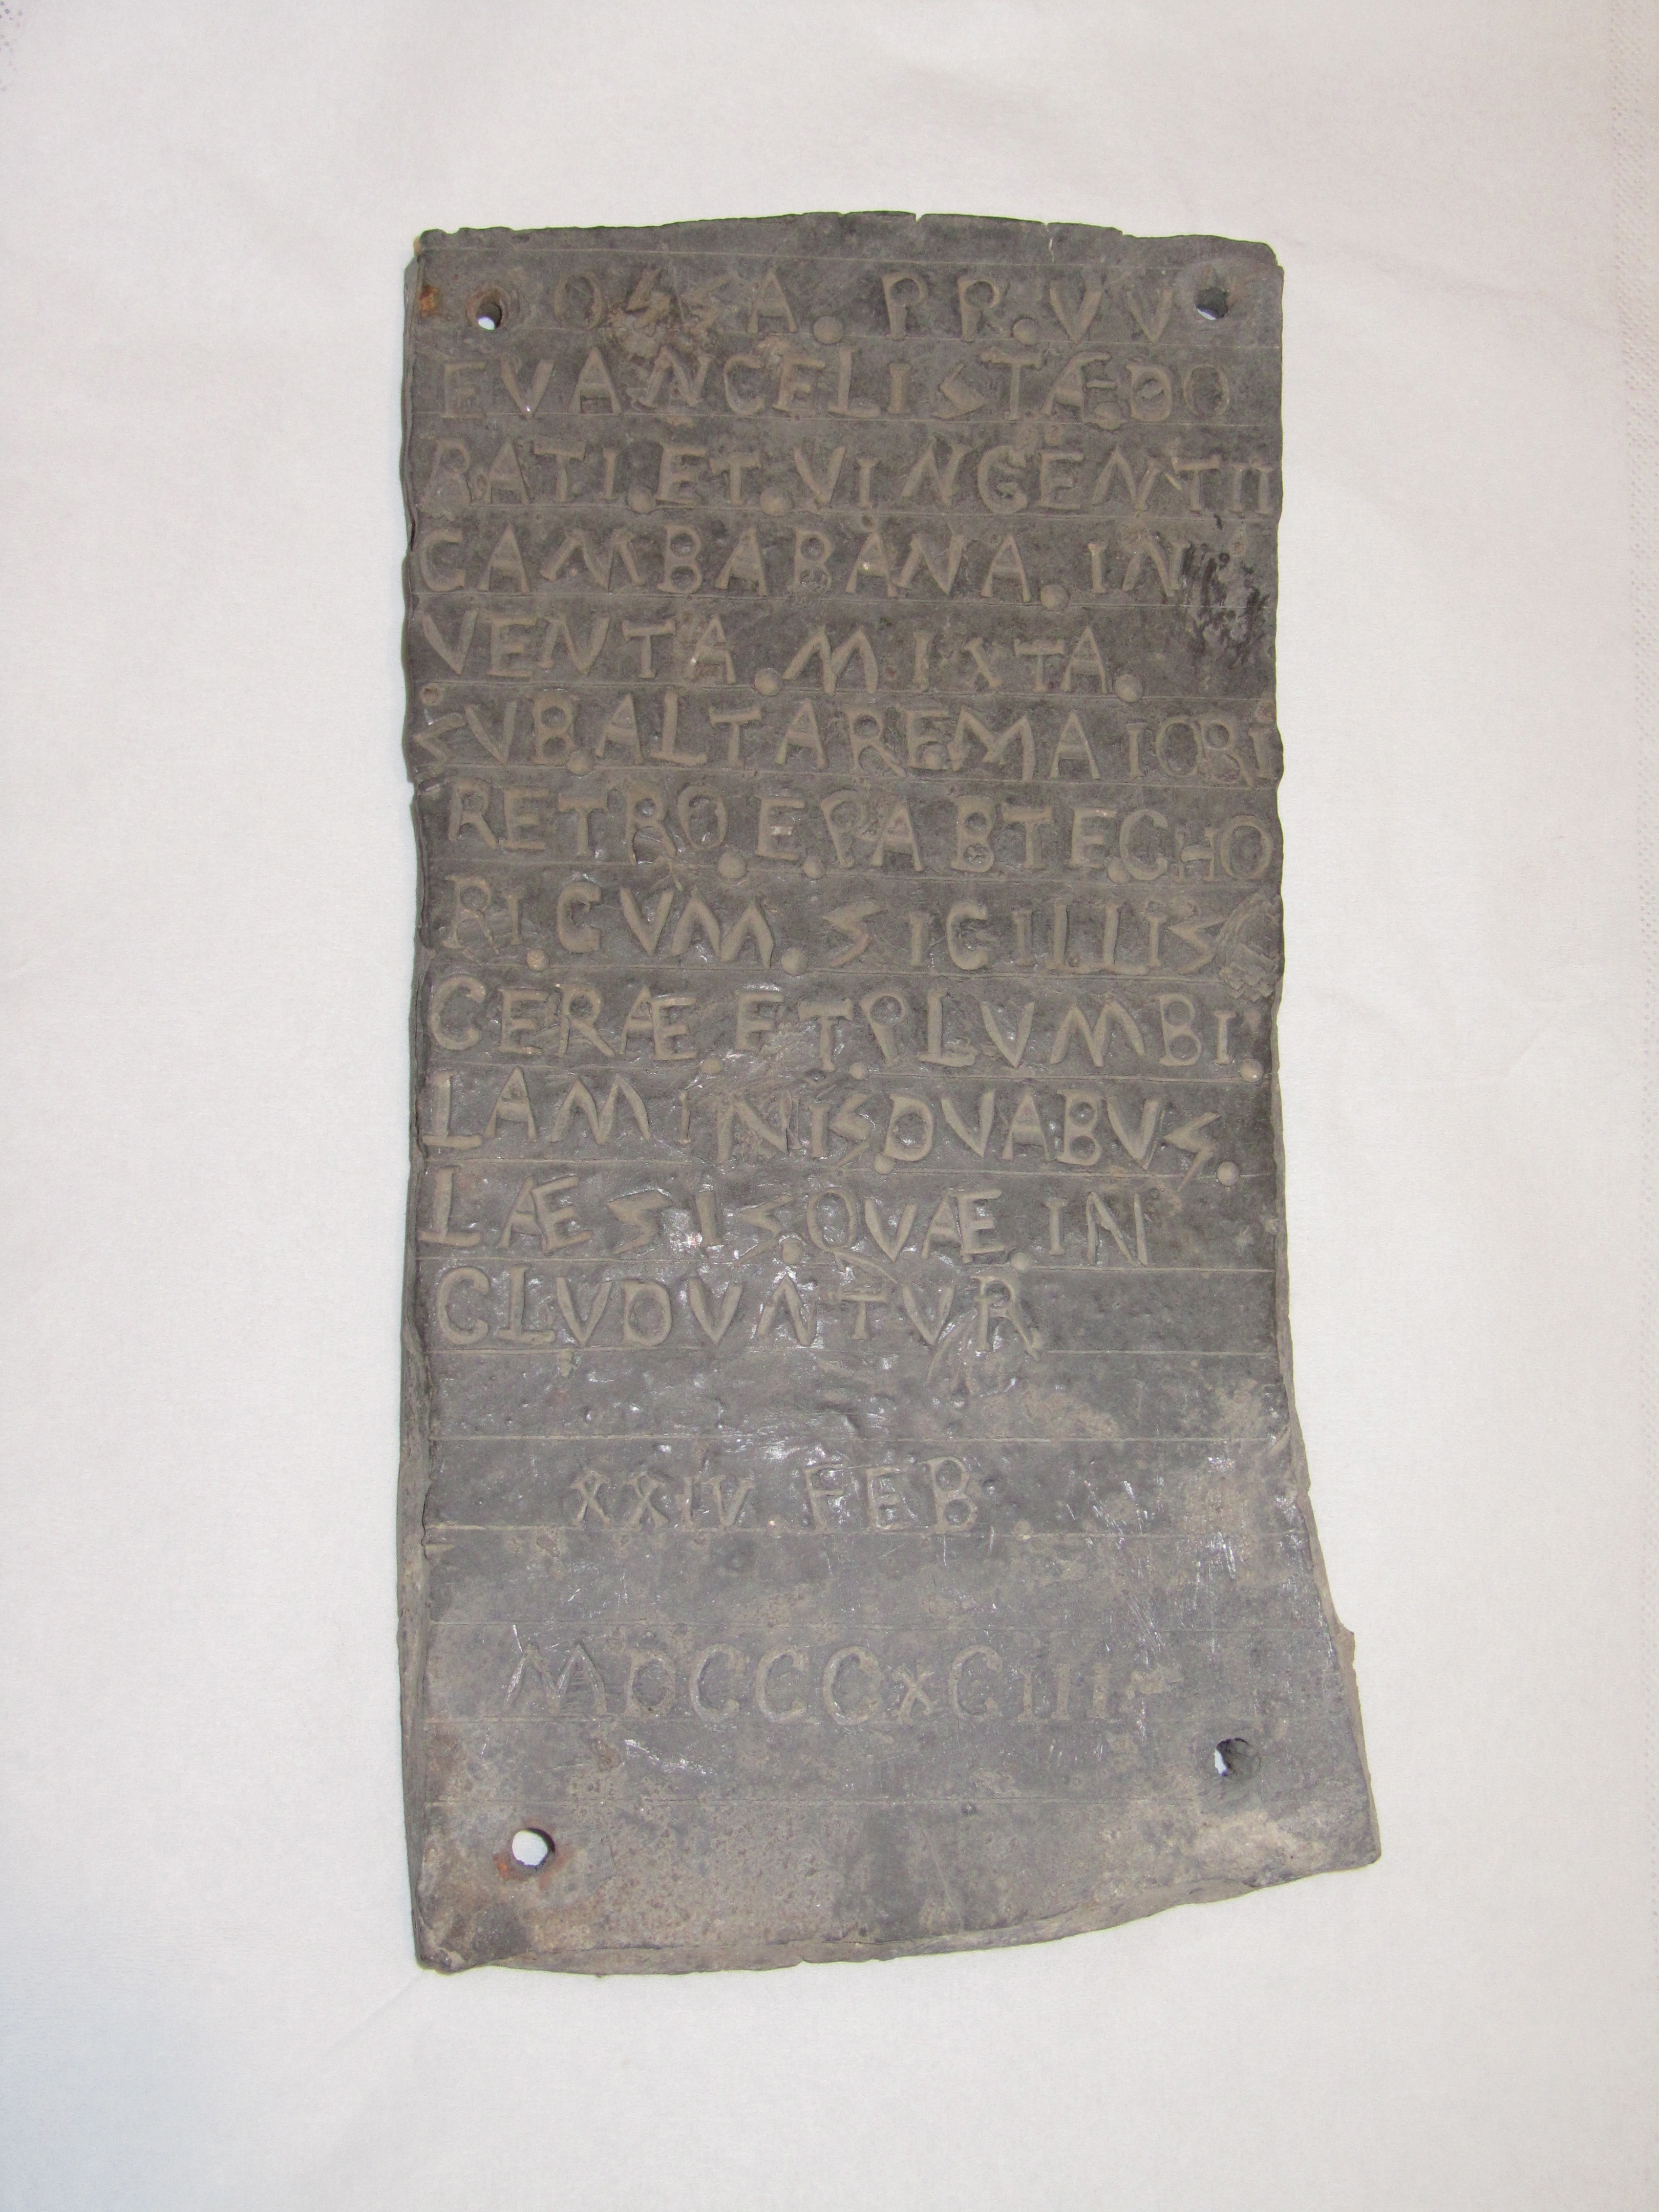 OSSA. PR. VV
EVANCELISTÆ. DO
RATI. ET. VINCENTII
CAMBARANA. IN
VENTA. MIXTA.
SVB. ALTARE MAIORI
RETRO. E. PABTE. CHO
RI. CVM. SIGILLIS
CERÆ. ET. PLVMBI.
LAMINIS. DVABVS.
LÆSIS. QVÆ. IN
CLVDVNTVR
XXIV FEB
MDCCCXCIII